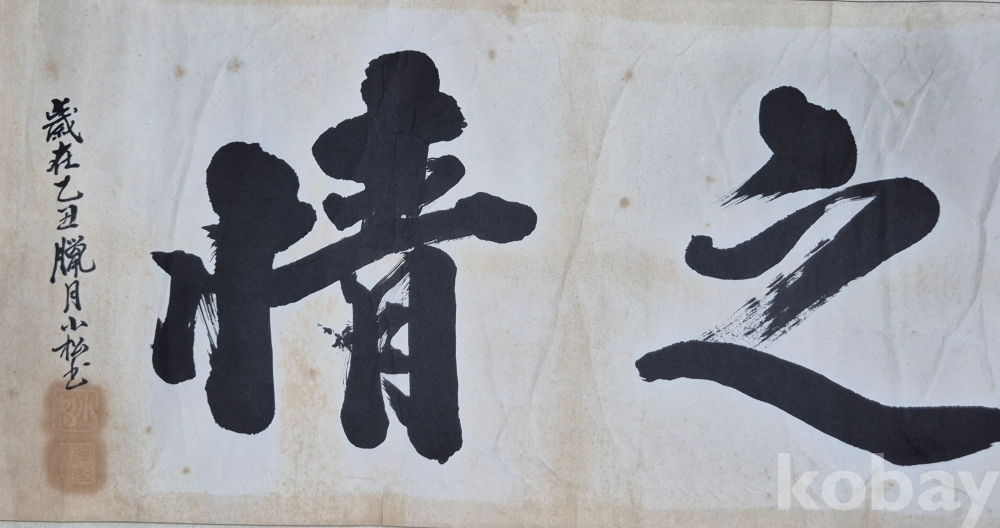 之情
歲在乙丑臘月小松書
kobay